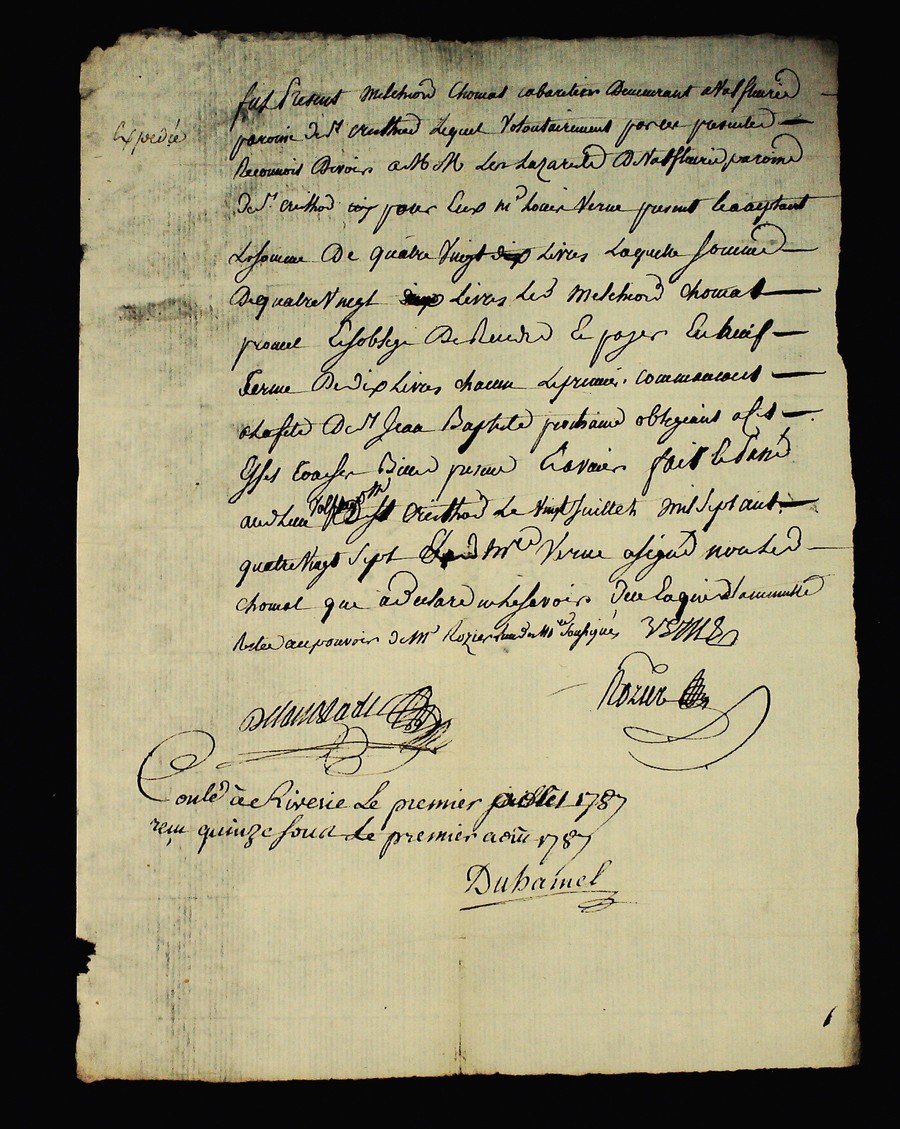 Expediée
fut Present Melchiord Chomat cabaretier Demeurant a Valfleurie
paroisse de St cristhod Lequel Volontairement par ces presentes
Reconnois Devoir a MM Les Lazariste De Valfleurie paroisse
de St. cristhod pour Eux Mr Louis Verne present le acceptant
La somme De quatre Vingt dix Livres Laquelle somme
De quatre Vingt Livres Led Melchiord Chomat
promet Et soblige De Rendre Et payer En neuf
Terme De dix Livres chacun Le premier commencent
a la fete De St Jean Baptiste prochaine obligeant a ces
fait Et passé
au d Lieu St cristhod Le Vingt Juillet mil sept cent
quatre Vingt Sept Led Mre Verne a signé non Led
Chomat que a Declaré ne le savoir De ce Enquis La minutte
Restee au pouvoir de Mr Rozier nre Soussignés VERNE
Rozier
Conlé à Riverie Le premier juillet 1787
reçu quinze sous Le premier aout 1787
Duhamel